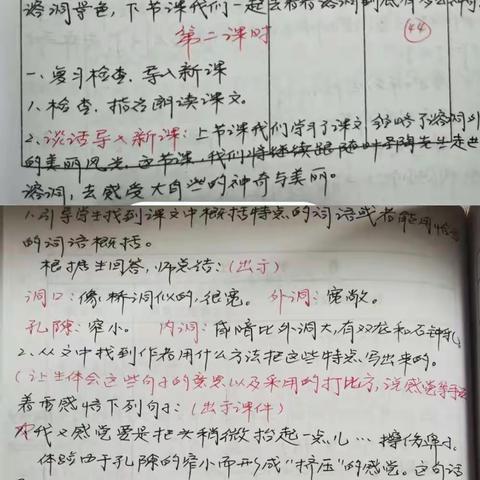 溶洞景色，下节课我们一起去看看溶洞到底有多么神奇
第二课时
44
一、复习检查，导入新课
1、检查，指名朗读课文。
2、谈话导入新课：上节课我们学习了课文，领略了溶洞外
的美丽风光，这节课，我们将继续跟随叶圣陶先生走进
溶洞，去感受大自然的神奇与美丽。
1、引导学生找到课文中概括特点的词语或者能用恰当
的词语概括。
根据生回答，师总结：（出示）
洞口：像桥洞似的，很宽。 外洞：宽敞。
孔隙：窄小。 内洞：昏暗比外洞大，有双龙和石钟乳
2、从文中找到作者用什么方法把这些特点写出来的。
（让生体会这些句子的意思以及采用的打比方，说感觉等手法
着重感悟下列句子：（出示课件）
感觉要是把头稍微抬起一点儿…擦伤鼻子。
体会由于孔隙的窄小而形成“挤压”的感觉。这句话